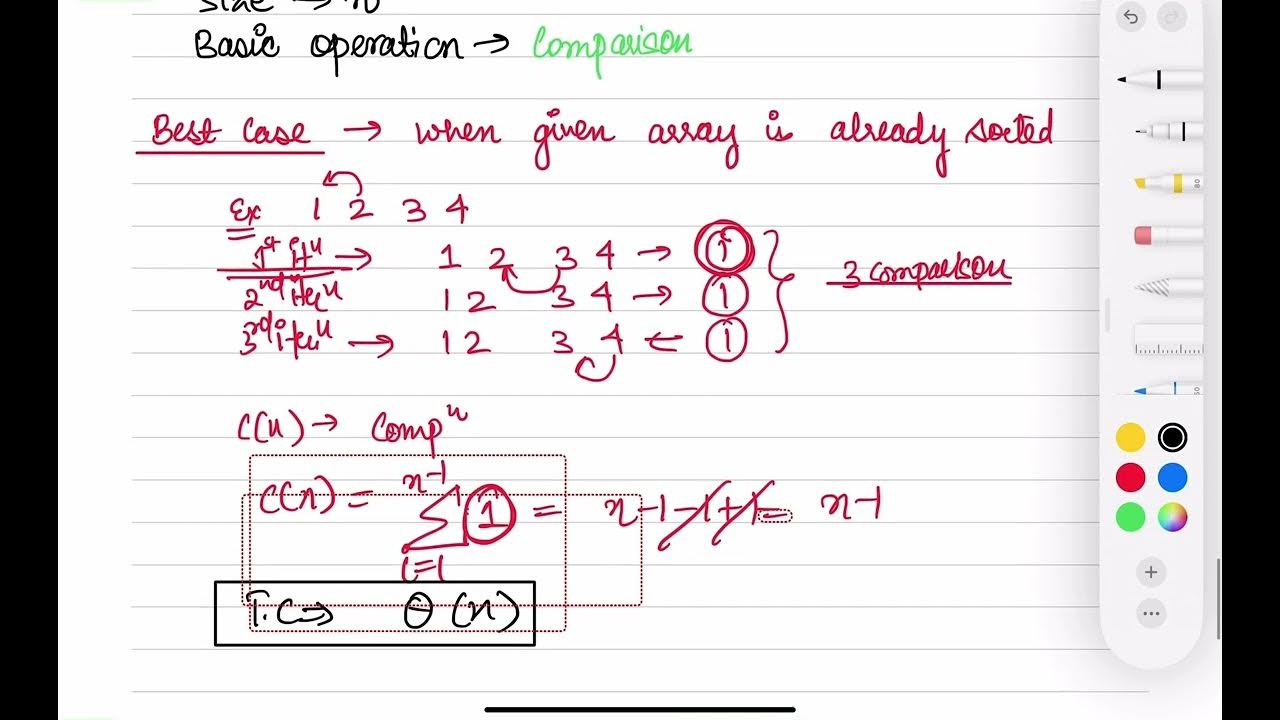 size → n
Basic operation → Comparison
Best Case → when given array is already sorted
Ex 1 2 3 4
1st itn → 1 2 3 4 → 1
2nd iten 1 2 3 4 → 1
3rd iten → 1 2 3 4 ← 1
3 comparison
C(n) → Compn
C(n) = n-1 Σ i=1 1 = n-1-1+1 = n-1
T.C ⇒ Θ(n)